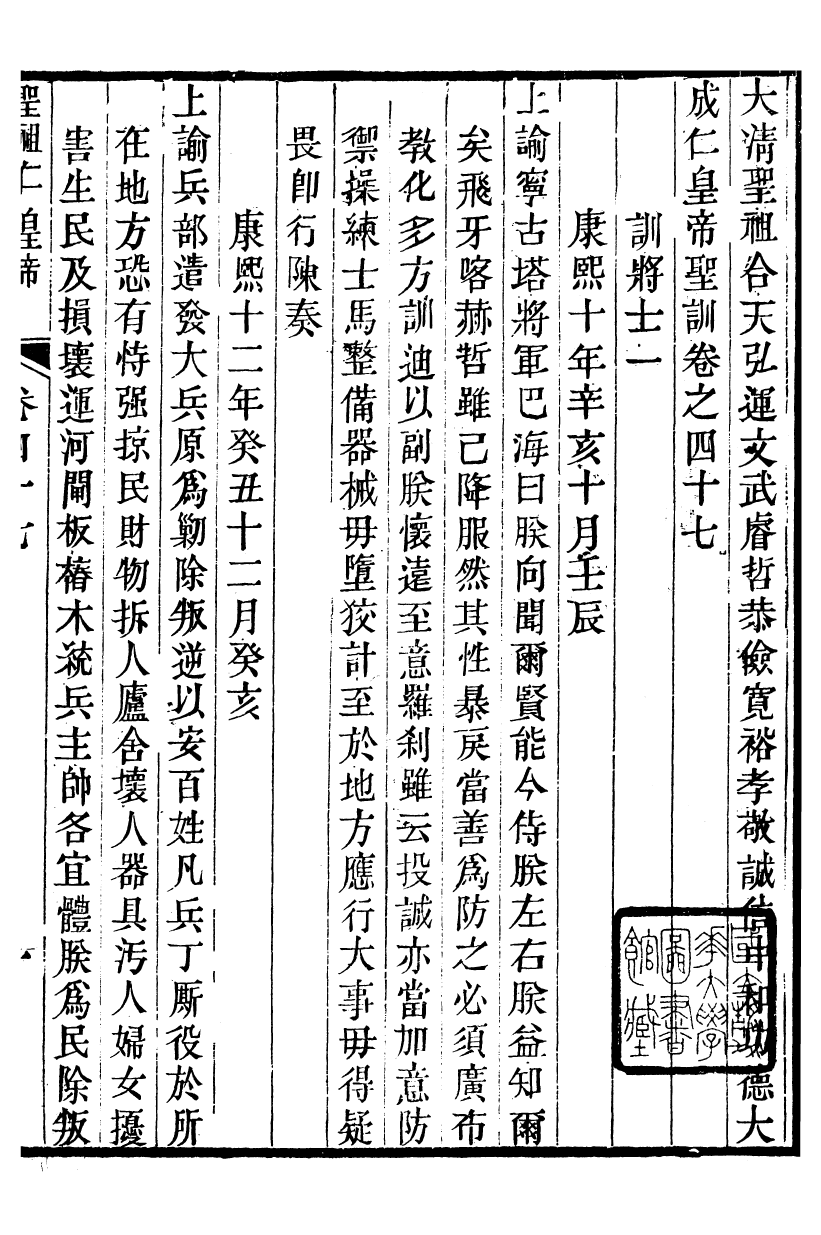 大清聖祖合天弘運文武睿哲恭儉寬裕孝敬誠信中和功德大
成仁皇帝聖訓卷之四十七
訓將士一
康熙十年辛亥十月壬辰
上諭寧古塔將軍巴海曰朕向聞爾賢能今侍朕左右朕益知爾
矣飛牙喀赫哲雖已降服然其性暴戾當善爲防之必須廣布
教化多方訓迪以副朕懷遠至意羅刹雖云投誠亦當加意防
禦操練士馬整備器械毋墮狡計至於地方應行大事毋得疑
畏卽行陳奏
康熙十二年癸丑十二月癸亥
上諭兵部遣發大兵原爲勦除叛逆以安百姓凡兵丁厮役於所
在地方恐有恃强掠民財物拆人廬舍壞人器具汚人婦女擾
害生民及損壞運河閘板樁木統兵主帥各宜體朕爲民除叛
聖祖仁皇帝 卷四十七 一
國立清華大學圖書館藏